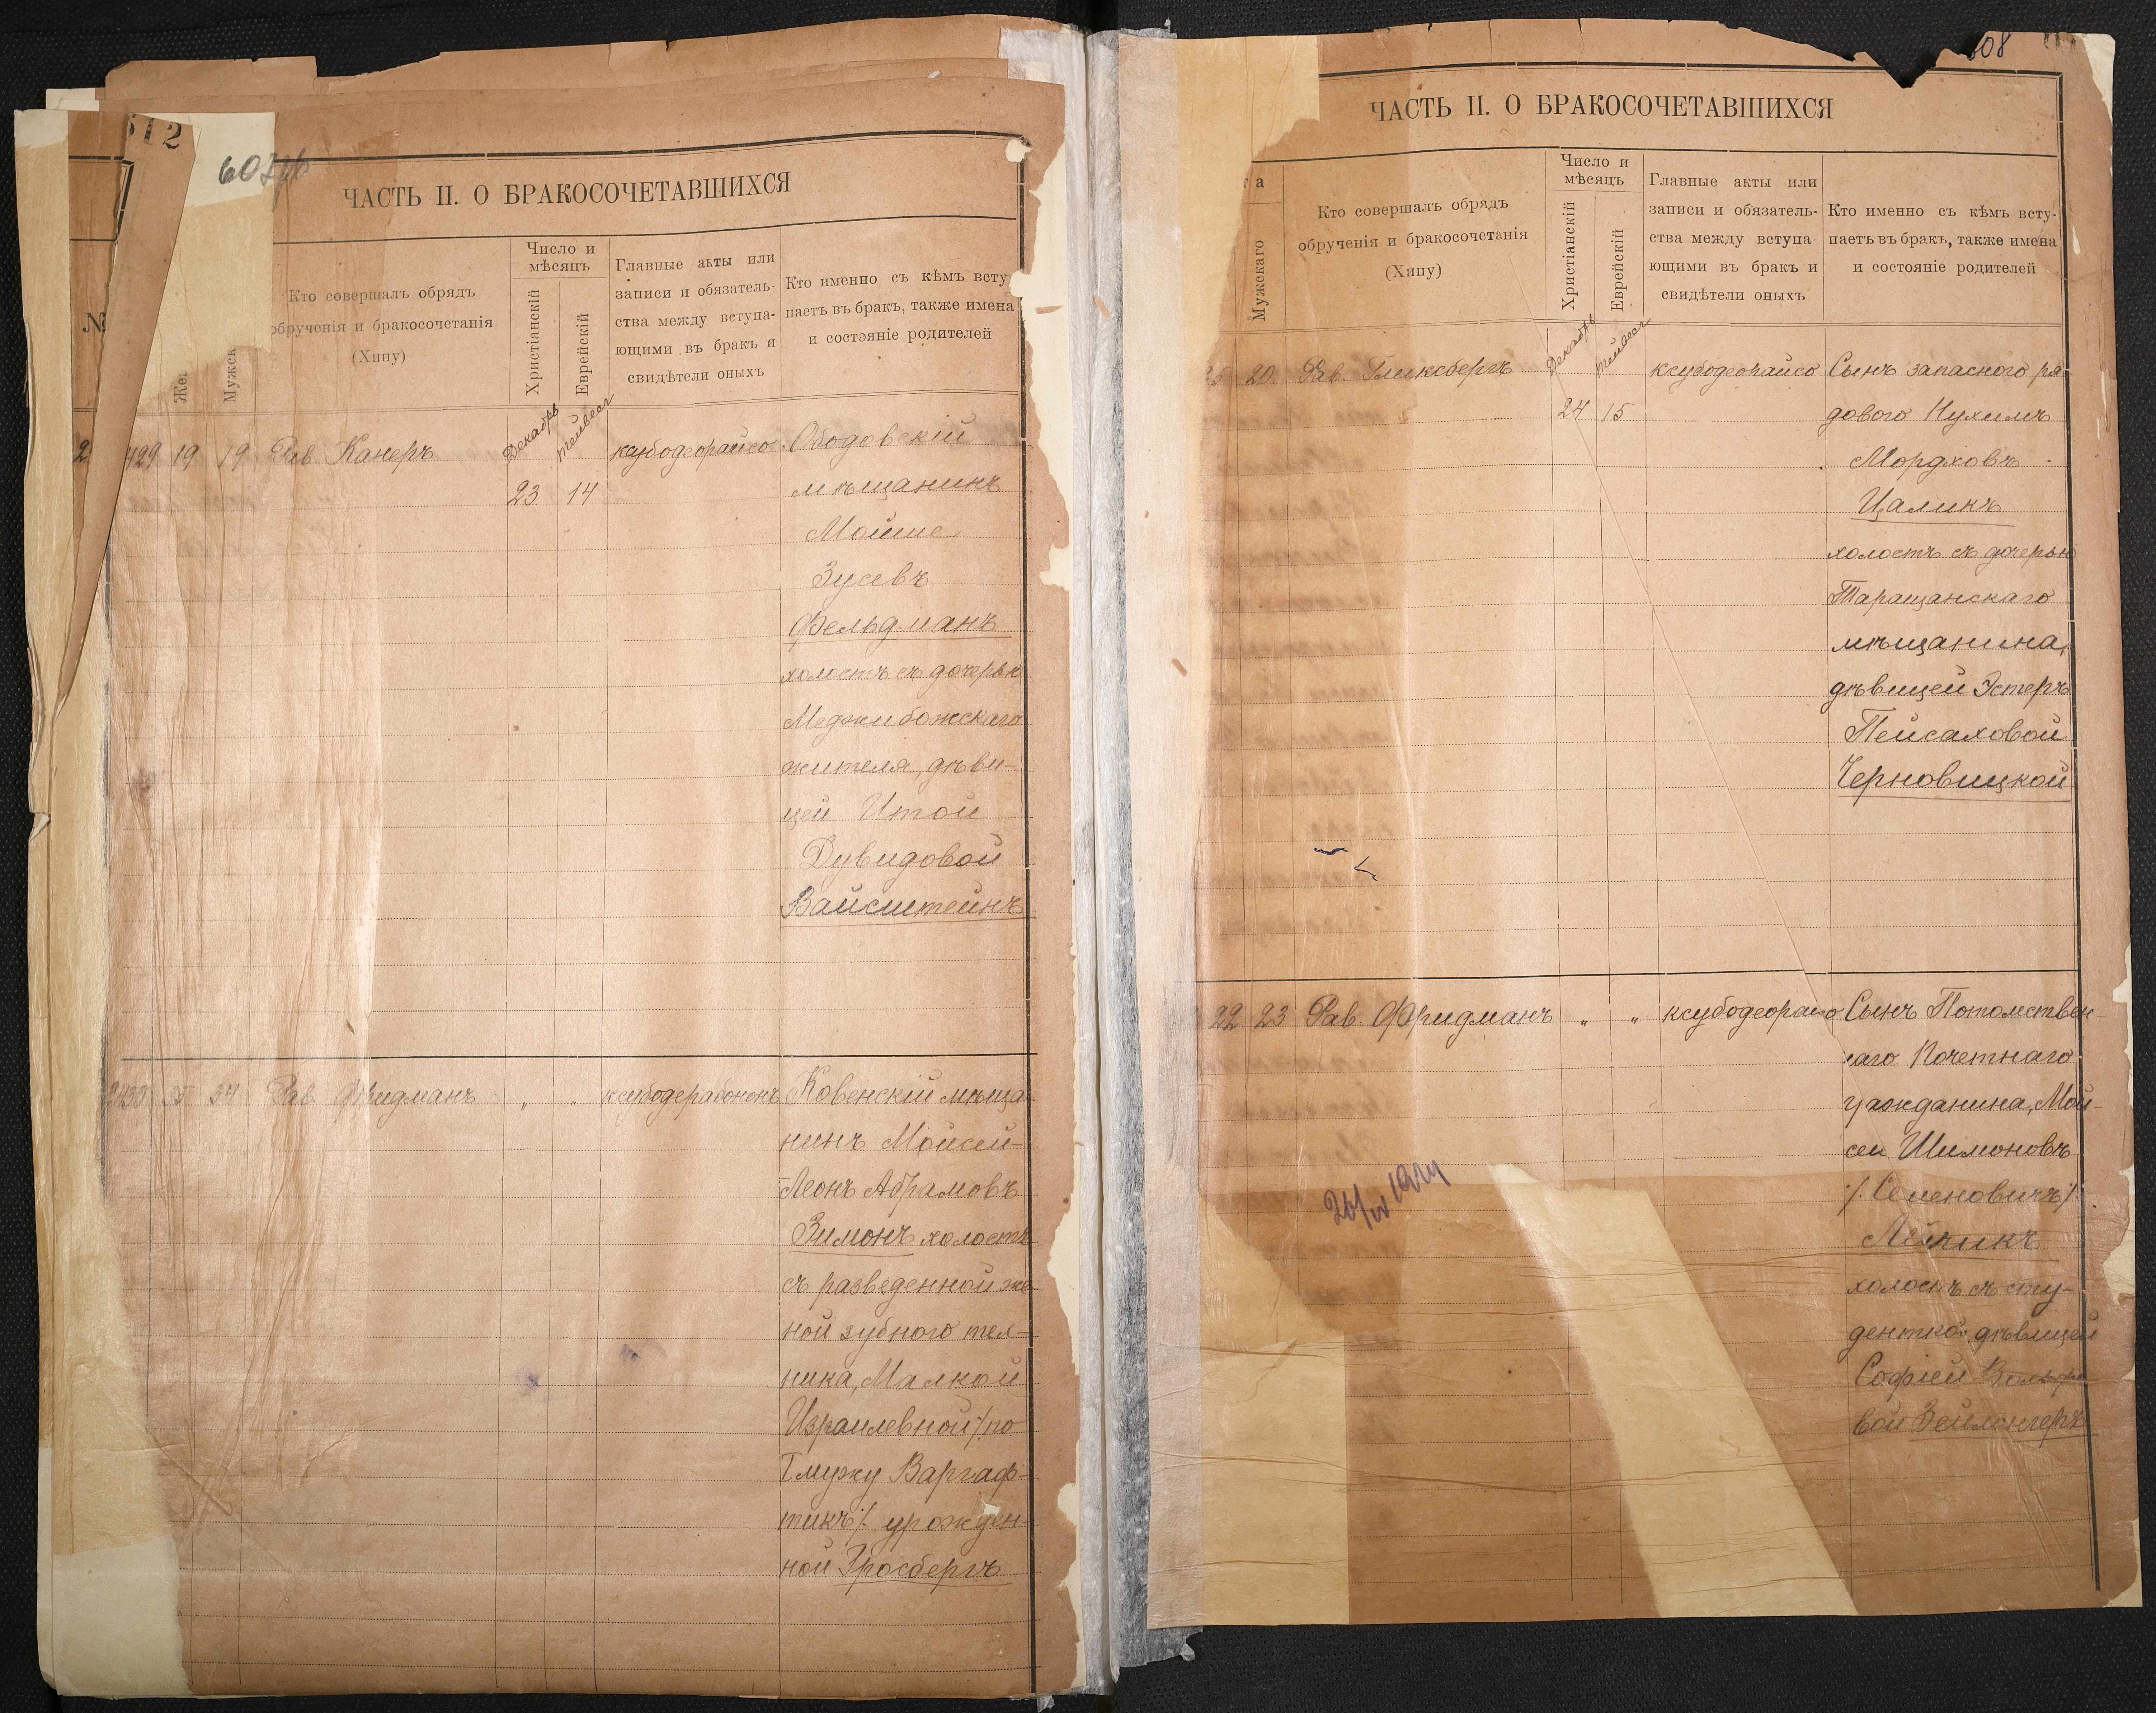 12
ЧАСТЬ II. О БРАКОСОЧЕТАВШИХСЯ
№
Мужск
Кто совершалъ обрядъ
обрученія и бракосочетанія
(Хипу)
Число и
мѣсяцъ
Христіанскій
Еврейскій
Главные акты или
записи и обязатель-
ства между вступа-
ющими въ бракъ и
свидѣтели оныхъ
Кто именно съ кѣмъ всту
паетъ въ бракъ, также имена
и состояніе родителей
429 19 19 Рав. Канеръ
Декабрь
Тейвесъ
23 14
ксубодеорайсо
Ободовскій
мѣщанинъ
Мойше
Зусевъ
Фельдманъ
холостъ съ дочерью
Меджибожскаго
жителя, дѣви-
цей Итой
Дувидовой
Вайсштейнъ
34 Рав. Фридманъ " " ксубодерабононъ
Ковенскій мѣща-
нинъ Мойсей-
Леонъ Абрамовъ
Зимонъ холостъ
съ разведенной же-
ной зубного тех-
ника, Малкой
Израилевной /. по
I мужу Варгаф-
тикъ /. урожден-
ной Гросбергъ
608
ЧАСТЬ II. О БРАКОСОЧЕТАВШИХСЯ
та
Мужскаго
Кто совершалъ обрядъ
обрученія и бракосочетанія
(Хипу)
Число и
мѣсяцъ
Христіанскій
Еврейскій
Главные акты или
записи и обязатель-
ства между вступа
ющими въ бракъ и
свидѣтели оныхъ
Кто именно съ кѣмъ всту-
паетъ въ бракъ, также имена
и состояніе родителей
20 Рав. Гликсбергъ
Декабрь
Тейвесъ
24 15
ксубодеорайсо
Сынъ запасного ря-
дового Нухимъ
Мордховъ
Цаликъ
холостъ съ дочерью
Таращанскаго
мѣщанина,
дѣвицей Эстеръ
Пейсаховой
Черновицкой
22 23 Рав. Фридманъ " " ксубодеорайсо
Сынъ Потомствен-
наго Почетнаго
гражданина, Мой-
сей Шимоновъ
/. Семеновичъ /.
холостъ съ сту-
денткой дѣвицей
Софіей
вой